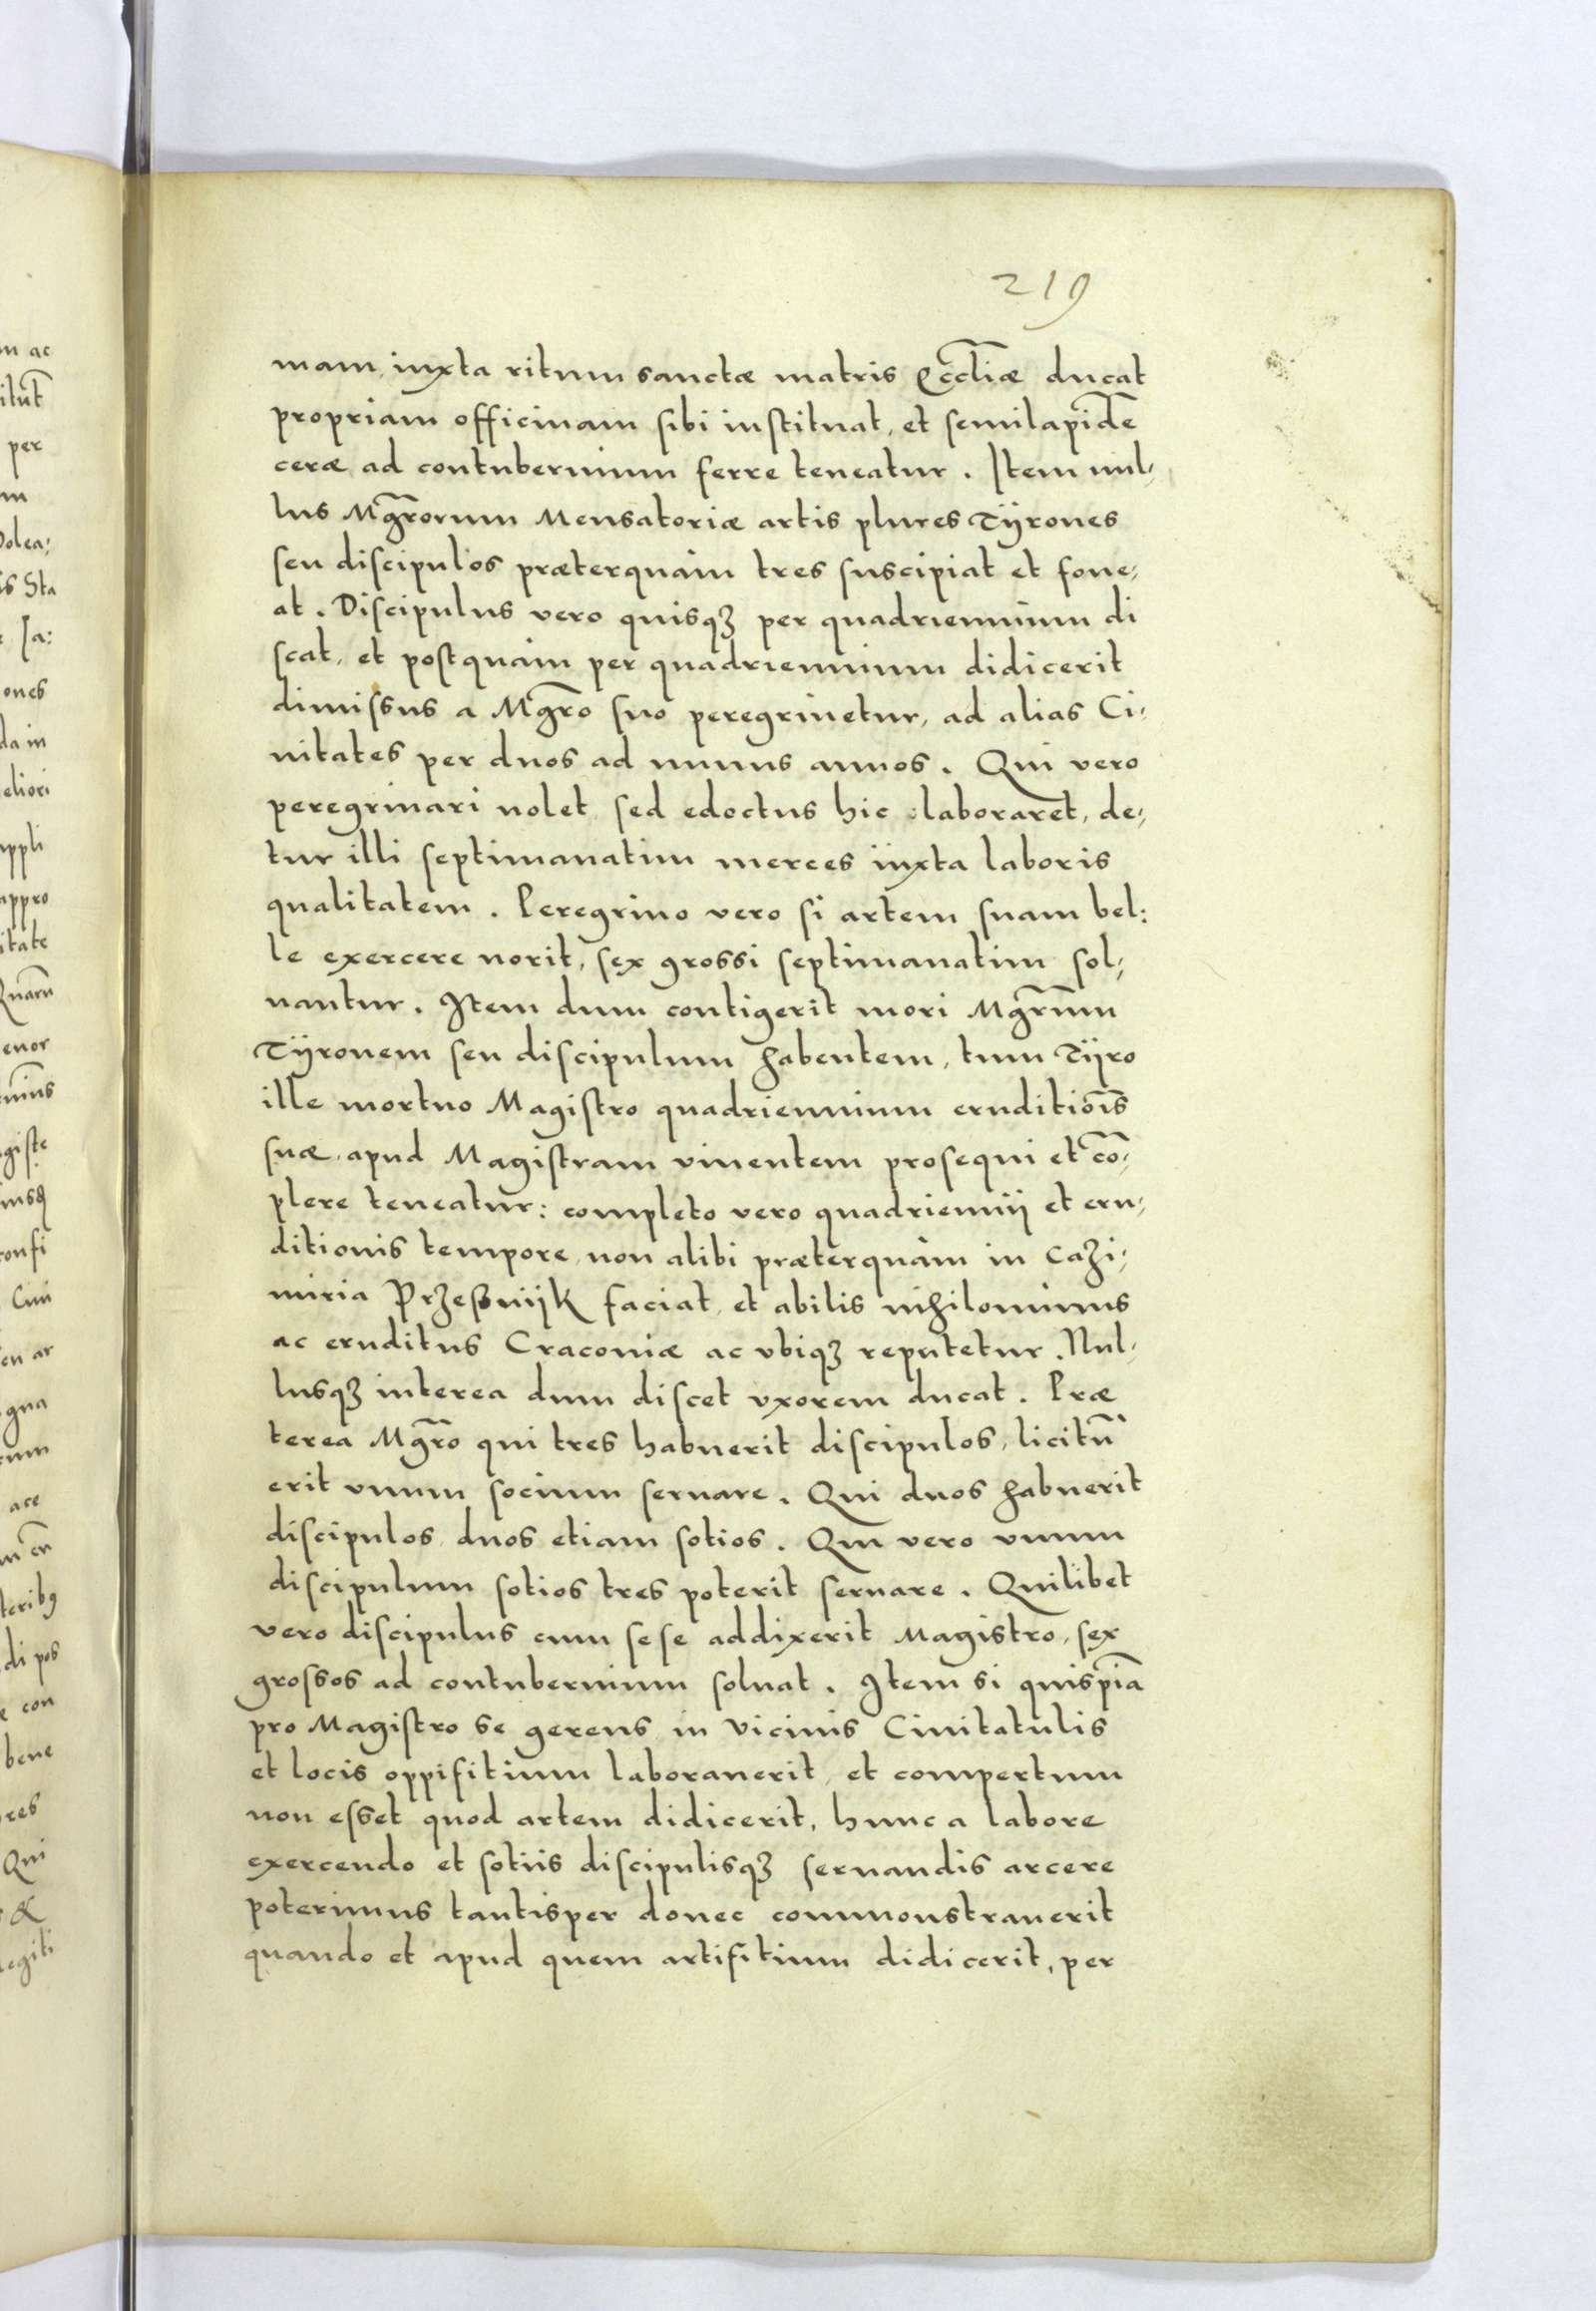 219
mam, iuxta ritum sanctæ matris Eccĺiæ ducat
propriam officinam sibi instituat, et semilapidẽ
ceræ ad contubernium ferre teneatur. Item nul,
lus Mgr̃orum Mensatoriæ artis plures Tÿrones
seu discipulos præterquam tres suscipiat et foue,
at. Discipulus vero quisqȝ per quadriennium di
scat, et postquam per quadriennium didicerit
dimissus a Mgr̃o suo peregrinetur, ad alias Ci,
uitates per duos ad minus annos. Qui vero
peregrinari nolet sed edoctus hic laboraret, de,
tur illi septimanatim merces iuxta laboris
qualitatem. Peregrino vero si artem suam bel:
le exercere norit, sex grossi septimanatim sol,
uantur. Item dum contigerit mori Mgr̃um
Tÿronem seu discipulum habentem, tum Tÿro
ille mortuo Magistro quadriennium eruditiõis
suæ, apud Magistram viuentem prosequi et cõ,
plere teneatur: completo vero quadriennij et eru,
ditionis tempore, non alibi præterquam in Cazi,
miria Przeßnijk faciat, et abilis nihilominus
ac eruditus Cracouiæ ac vbiqȝ reputetur. Nul,
lusqȝ interea dum discet vxorem ducat. Præ
terea Mgr̃o qui tres habuerit discipulos, licitũ
erit vnum socium seruare. Qui duos habuerit
discipulos, duos etiam sotios. Qui vero vnum
discipulum sotios tres poterit seruare. Quilibet
vero discipulus cum sese addixerit Magistro, sex
grossos ad contubernium soluat. Item si quispiã
pro Magistro se gerens in vicinis Ciuitatulis
et locis oppifitium laborauerit, et compertum
non esset quod artem didicerit, hunc a labore
exercendo et sotiis discipulisqȝ seruandis arcere
poterimus tantisper donec commonstrauerit
quando et apud quem artifitium didicerit, per